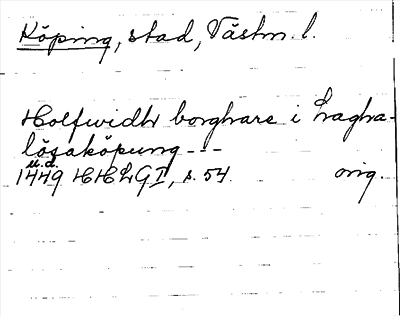 Köping, stad, Västm. l.
Holfwidh borghare i Lagha-
lösaköpung ---
u.d.
1449 HHLGI, s. 54. orig.